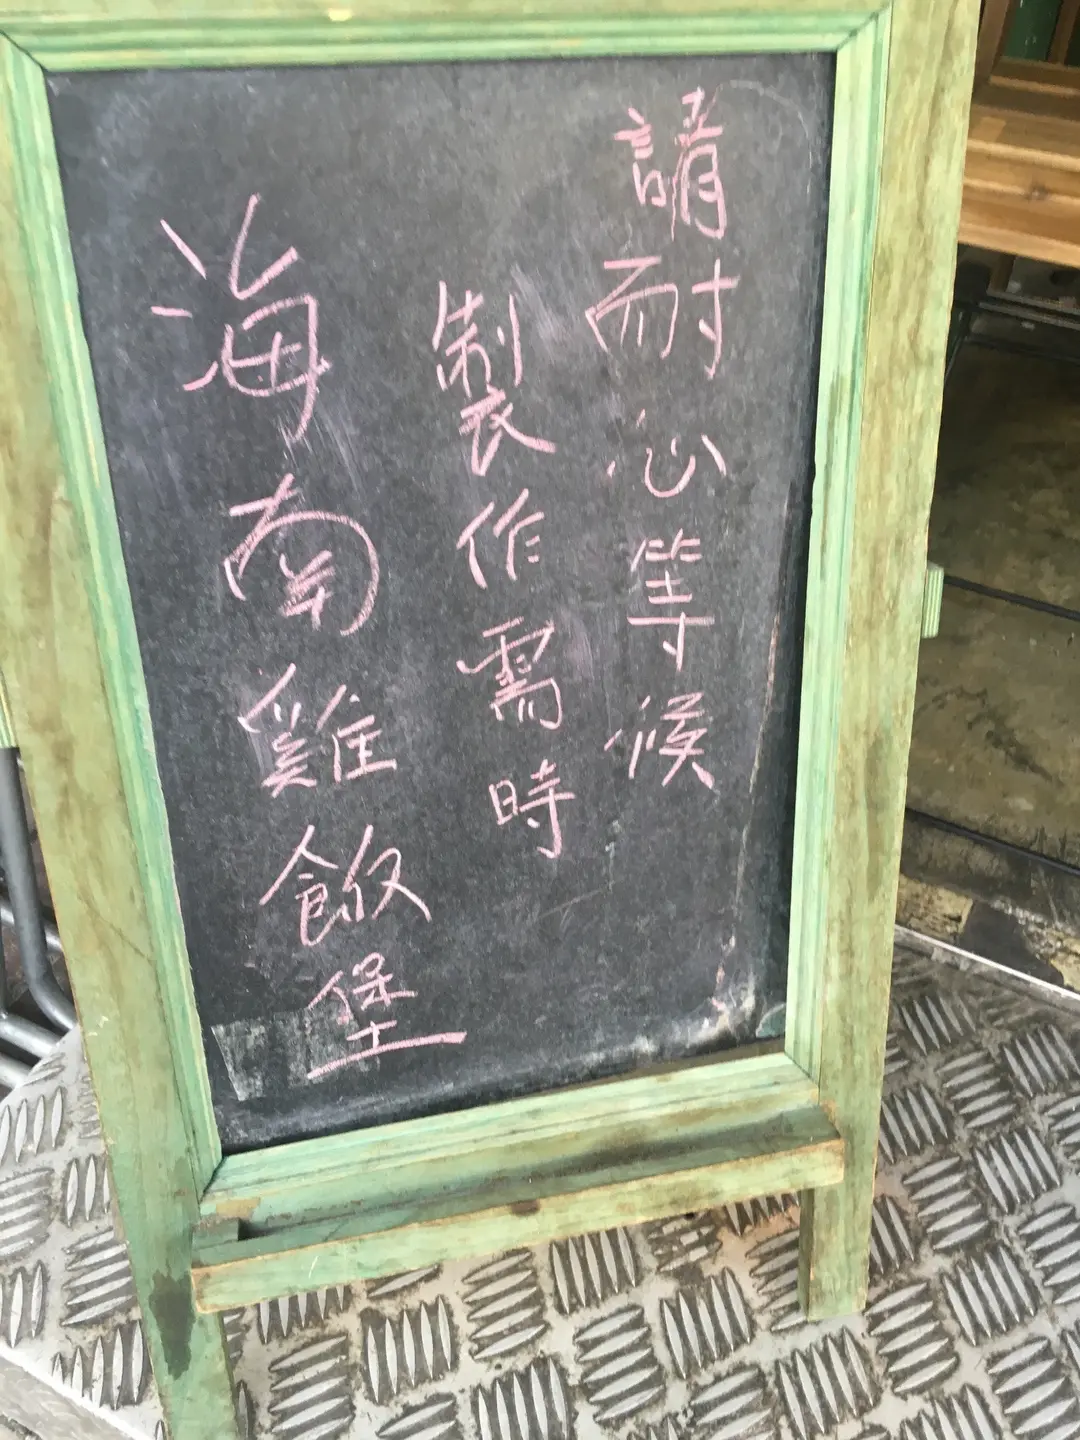 請耐心等候
製作需時
海南雞飯堡